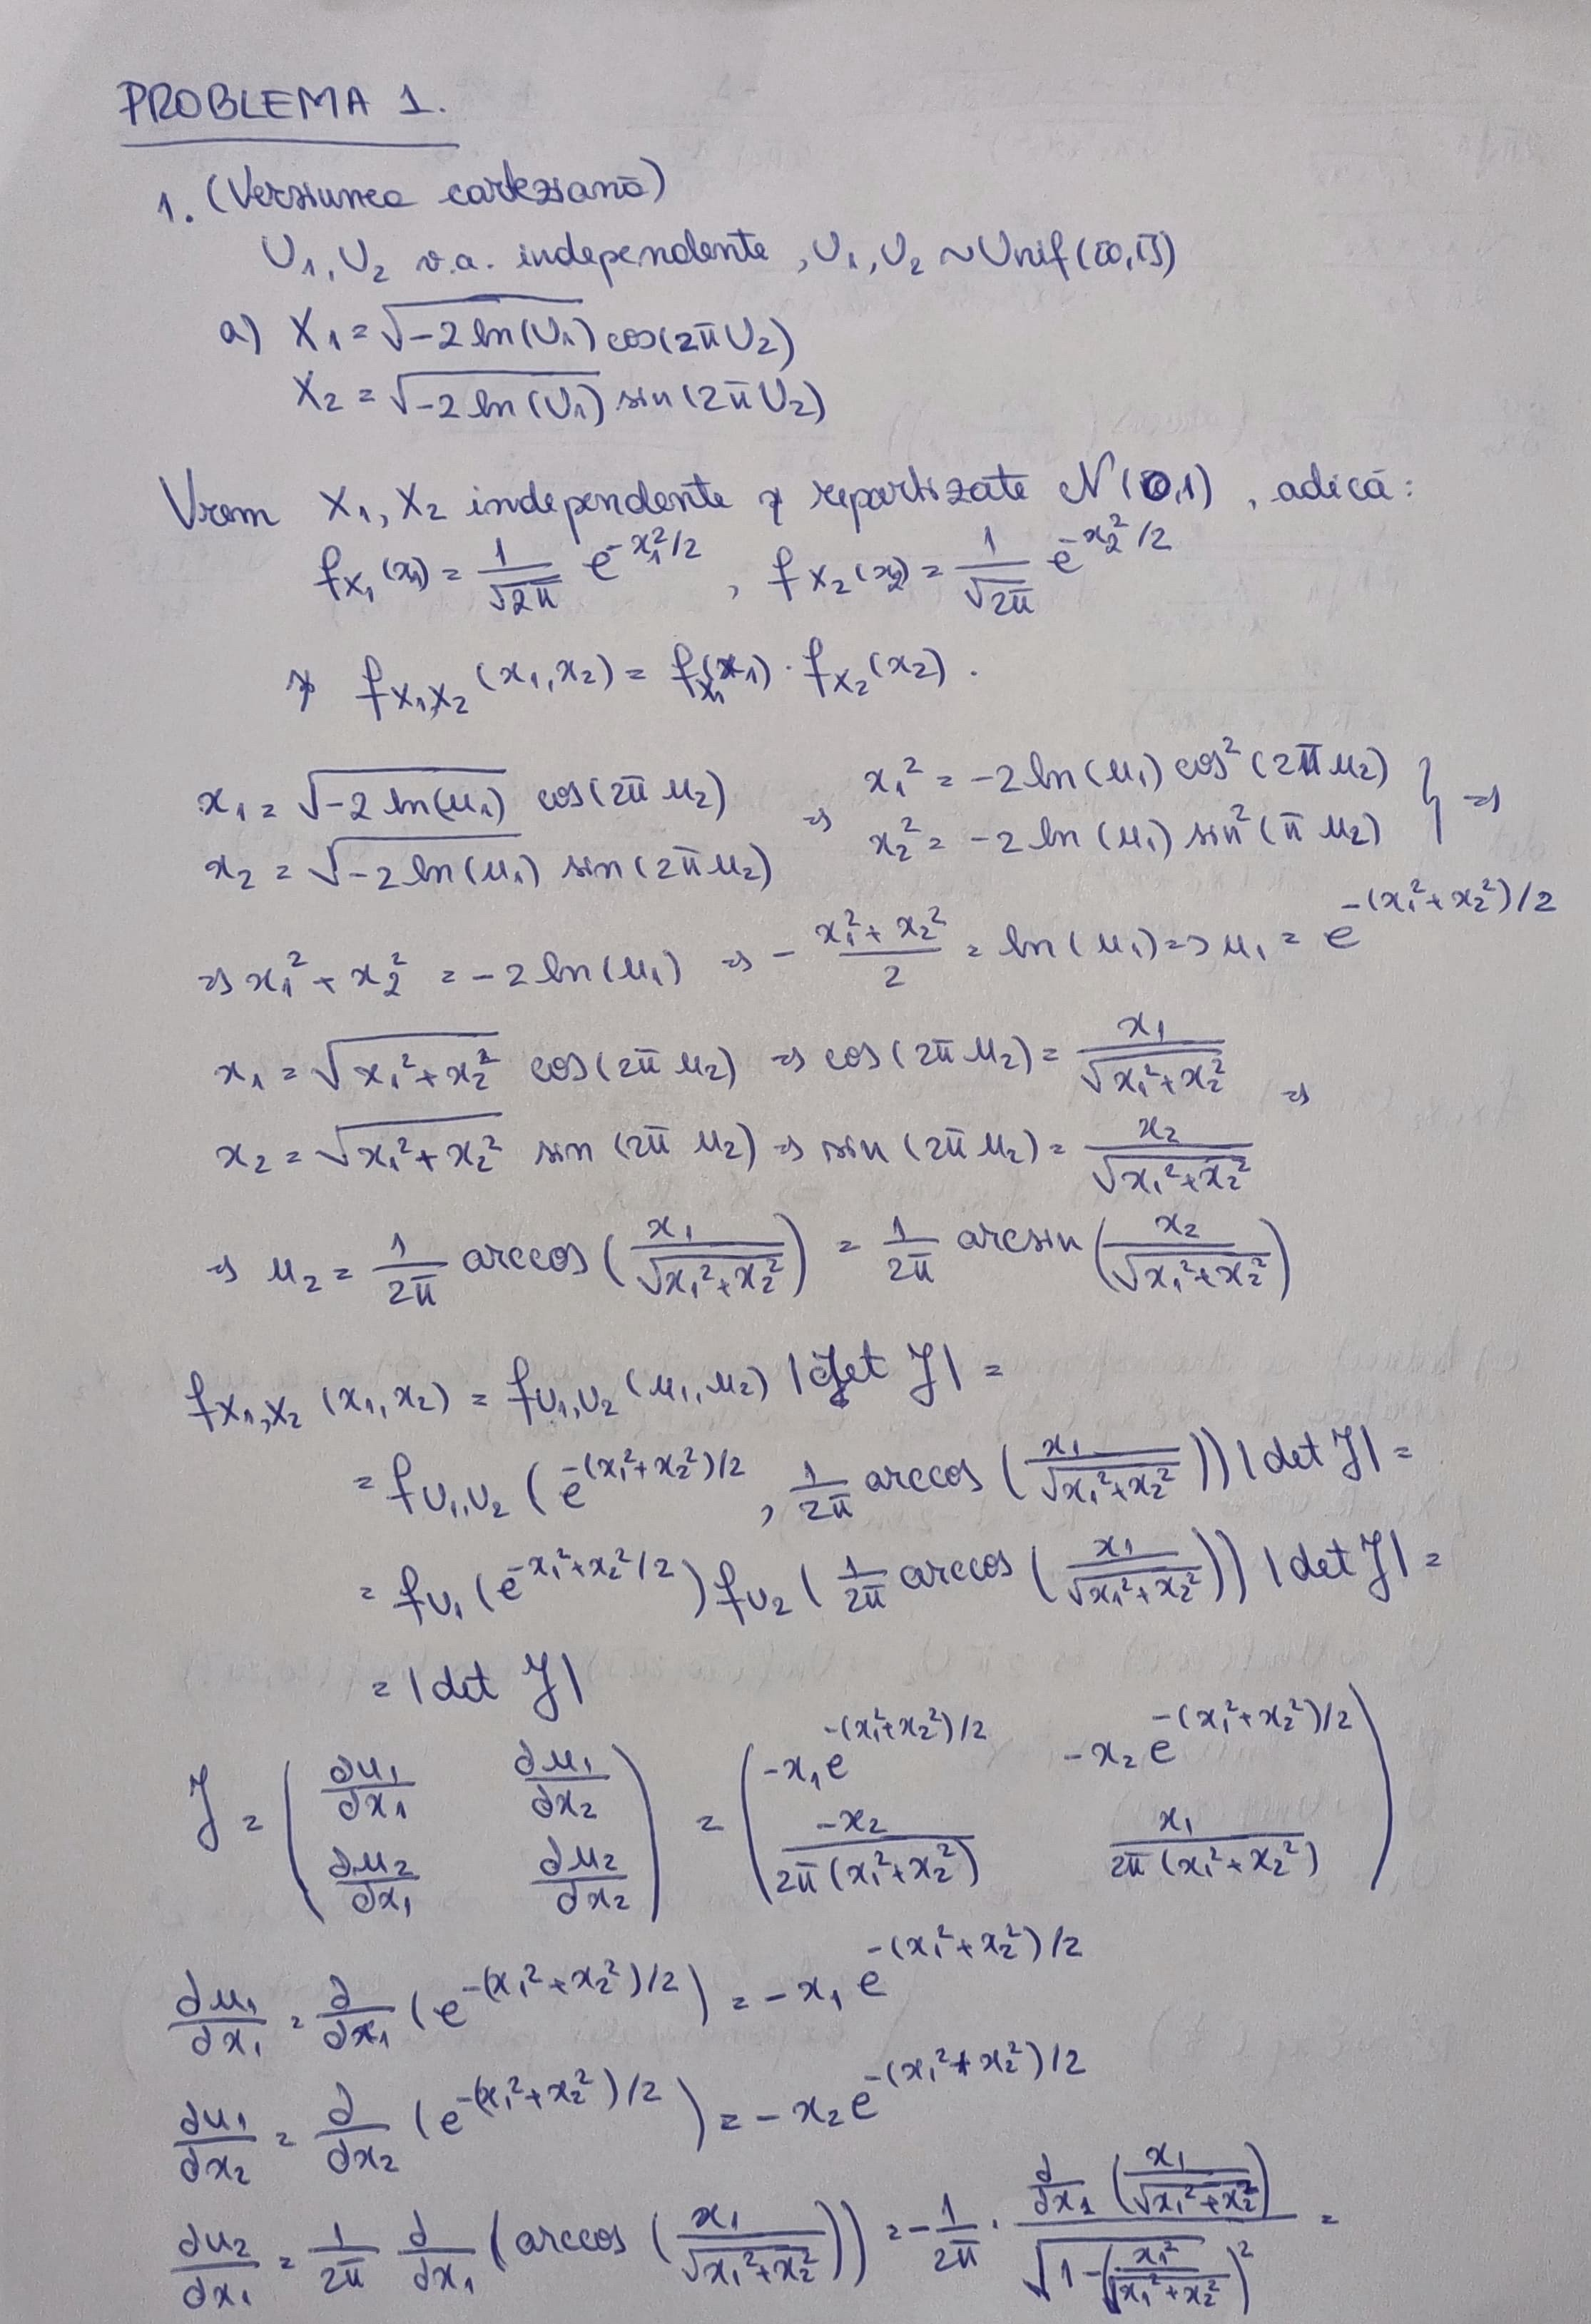 PROBLEMA 1.
1. (Versiunea carteziană)
U₁, U₂ v.a. independente, U₁, U₂ ~ Unif([0,1])
a) X₁ = √(-2 ln(U₁)) cos(2π U₂)
X₂ = √(-2 ln(U₁)) sin(2π U₂)
Vrem X₁, X₂ independente și repartizate N(0,1), adică:
f_X₁(x₁) = 1/√(2π) e^(-x₁²/2), f_X₂(x₂) = 1/√(2π) e^(-x₂²/2)
și f_X₁,X₂(x₁,x₂) = f_X₁(x₁) · f_X₂(x₂).
x₁ = √(-2 ln(u₁)) cos(2π u₂) ⇒ x₁² = -2 ln(u₁) cos²(2π u₂) } ⇒
x₂ = √(-2 ln(u₁)) sin(2π u₂) x₂² = -2 ln(u₁) sin²(π u₂)
⇒ x₁² + x₂² = -2 ln(u₁) ⇒ -(x₁² + x₂²)/2 = ln(u₁) ⇒ u₁ = e^(-(x₁² + x₂²)/2)
x₁ = √(x₁² + x₂²) cos(2π u₂) ⇒ cos(2π u₂) = x₁/√(x₁² + x₂²) ⇒
x₂ = √(x₁² + x₂²) sin(2π u₂) ⇒ sin(2π u₂) = x₂/√(x₁² + x₂²)
⇒ u₂ = 1/(2π) arccos(x₁/√(x₁² + x₂²)) = 1/(2π) arcsin(x₂/√(x₁² + x₂²))
f_X₁,X₂(x₁,x₂) = f_U₁,U₂(u₁,u₂) |det J| =
= f_U₁,U₂(e^(-(x₁² + x₂²)/2), 1/(2π) arccos(x₁/√(x₁² + x₂²))) |det J| =
= f_U₁(e^(-x₁² + x₂²/2)) f_U₂(1/(2π) arccos(x₁/√(x₁² + x₂²))) |det J| =
= |det J|
J = (∂u₁/∂x₁ ∂u₁/∂x₂ ; ∂u₂/∂x₁ ∂u₂/∂x₂) = (-x₁ e^(-(x₁² + x₂²)/2) -x₂ e^(-(x₁² + x₂²)/2) ; -x₂/(2π(x₁² + x₂²)) x₁/(2π(x₁² + x₂²)))
∂u₁/∂x₁ = ∂/∂x₁ (e^(-(x₁² + x₂²)/2)) = -x₁ e^(-(x₁² + x₂²)/2)
∂u₁/∂x₂ = ∂/∂x₂ (e^(-(x₁² + x₂²)/2)) = -x₂ e^(-(x₁² + x₂²)/2)
∂u₂/∂x₁ = 1/(2π) ∂/∂x₁ (arccos(x₁/√(x₁² + x₂²))) = -1/(2π) · ∂/∂x₁(x₁/√(x₁² + x₂²)) / √(1-(x₁²/√(x₁² + x₂²))²) =